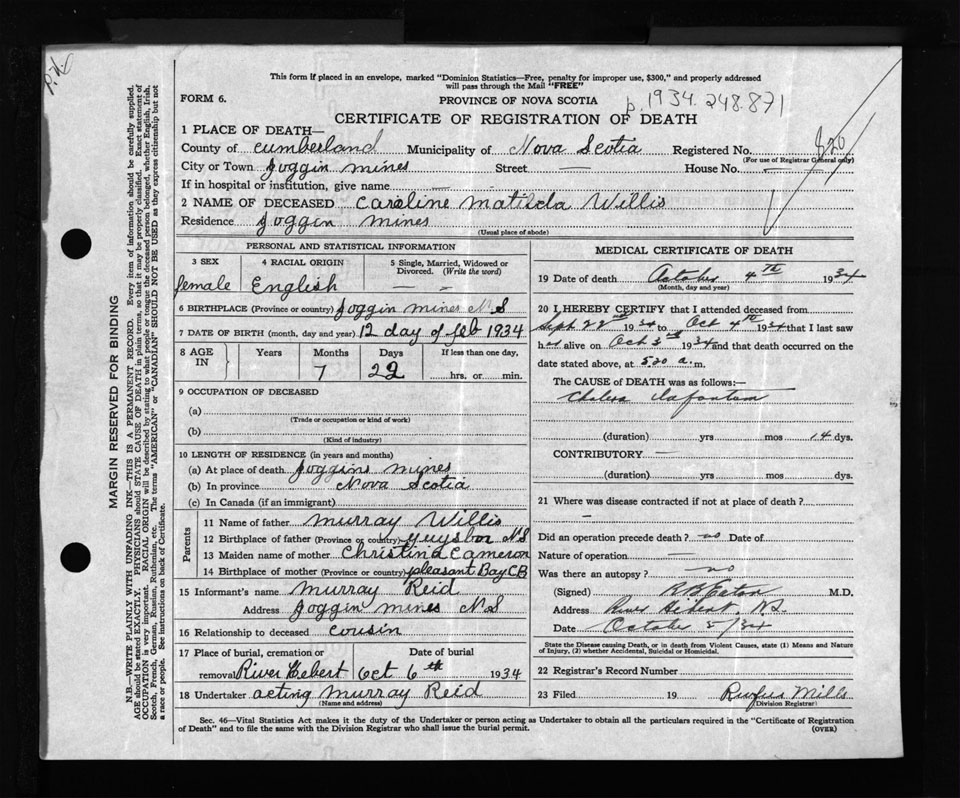 P.H.
This form if placed in an envelope, marked "Dominion Statistics—Free, penalty for improper use, $300," and properly addressed
will pass through the Mail "FREE"
FORM 6.
PROVINCE OF NOVA SCOTIA
p. 1934. 248.871
CERTIFICATE OF REGISTRATION OF DEATH
1 PLACE OF DEATH—
County of Cumberland Municipality of Nova Scotia Registered No. 826
(For use of Registrar General only)
City or Town Joggin mines Street — House No. —
If in hospital or institution, give name —
2 NAME OF DECEASED Caroline Matilda Willis
Residence Joggin mines
(Usual place of abode)
PERSONAL AND STATISTICAL INFORMATION
3 SEX 4 RACIAL ORIGIN 5 Single, Married, Widowed or
Divorced. (Write the word)
female English — —
6 BIRTHPLACE (Province or country) Joggin mines N.S
7 DATE OF BIRTH (month, day and year) 12 day of feb 1934
8 AGE IN Years Months Days If less than one day,
7 22 hrs. or min.
9 OCCUPATION OF DECEASED
(a)
(Trade or occupation or kind of work)
(b)
(Kind of industry)
10 LENGTH OF RESIDENCE (in years and months)
(a) At place of death Joggins mines
(b) In province Nova Scotia
(c) In Canada (if an immigrant)
Parents
11 Name of father Murray Willis
12 Birthplace of father (Province or country) Guysbor N.S
13 Maiden name of mother Christina Cameron
14 Birthplace of mother (Province or country) pleasant Bay CB
15 Informant's name Murray Reid
Address Joggin mines N.S
16 Relationship to deceased cousin
17 Place of burial, cremation or Date of burial
removal River Hebert Oct 6th 1934
18 Undertaker acting Murray Reid
(Name and address)
MEDICAL CERTIFICATE OF DEATH
19 Date of death October 4th 1934
(Month, day and year)
20 I HEREBY CERTIFY that I attended deceased from
Sept 22nd 1934 to Oct 4th 1934 that I last saw
h alive on Oct 3rd 1934 and that death occurred on the
date stated above, at 5.00 a. m.
The CAUSE of DEATH was as follows:—
Cholera Infantum
(duration) yrs mos 14 dys.
CONTRIBUTORY —
(duration) yrs mos dys.
21 Where was disease contracted if not at place of death?
—
Did an operation precede death? no Date of
Nature of operation —
Was there an autopsy? no
(Signed) Eaton M.D.
Address River Hebert, N.S.
Date October 5/34
State the Disease causing Death, or in death from Violent Causes, state (1) Means and Nature
of Injury, (2) whether Accidental, Suicidal or Homicidal.
22 Registrar's Record Number
23 Filed 19 Rufus Mills
(Division Registrar)
Sec. 46—Vital Statistics Act makes it the duty of the Undertaker or person acting as Undertaker to obtain all the particulars required in the "Certificate of Registration
of Death" and to file the same with the Division Registrar who shall issue the burial permit. (OVER)
MARGIN RESERVED FOR BINDING
N.B.—WRITE PLAINLY WITH UNFADING INK—THIS IS A PERMANENT RECORD. Every item of information should be carefully supplied.
AGE should be stated EXACTLY. PHYSICIANS should STATE CAUSE OF DEATH in plain terms, so that it may be properly classified. Exact statement of
OCCUPATION is very important. RACIAL ORIGIN will be described by stating to what people or tongue the deceased person belonged, whether English, Irish,
Scotch, French, German, Russian, Ruthenian, etc. The terms "AMERICAN" or "CANADIAN" SHOULD NOT BE USED as they express citizenship but not
a race or people. See instructions on back of Certificate.